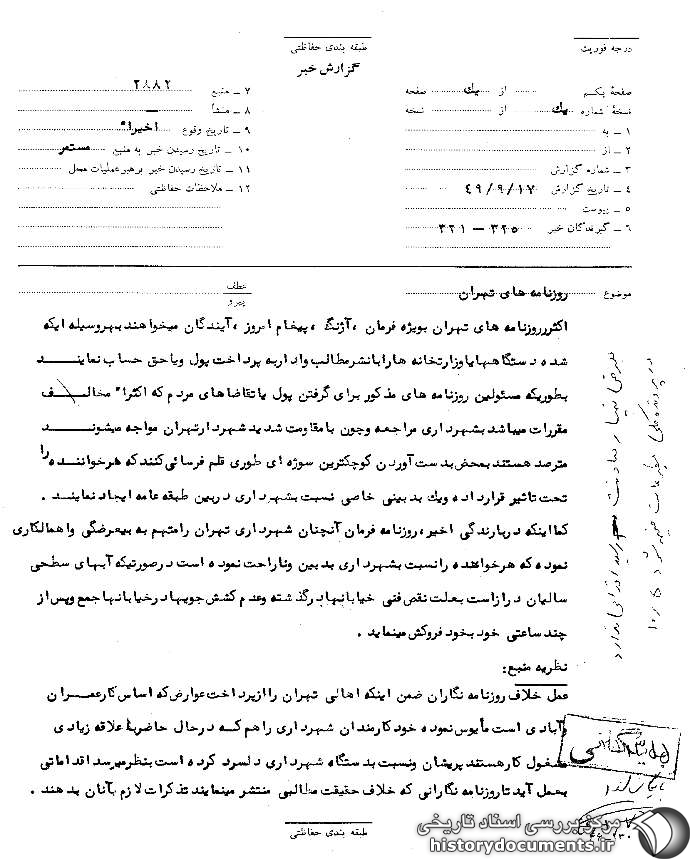 درجه فوریت
طبقه بندی حفاظتی
گزارش خبر
صفحهٔ یکم از یک صفحه
نسخهٔ شماره یک از نسخه
۱ ـ به
۲ ـ از
۳ ـ شماره گزارش
۴ ـ تاریخ گزارش ۴۹/۹/۱۷
۵ ـ پیوست
۶ ـ گیرندگان خبر ۳۲۵ ـ ۳۲۱
۷ ـ منبع ۲۸۸۲
۸ ـ منشأ
۹ ـ تاریخ وقوع اخیراً
۱۰ ـ تاریخ رسیدن خبر به منبع مستمر
۱۱ ـ تاریخ رسیدن خبر برهبر عملیات محل
۱۲ ـ ملاحظات حفاظتی
موضوع روزنامه های تهران
عطف
پیرو
اکثر روزنامه های تهران بویژه فرمان ، آژنگ ، پیغام امروز ، آیندگان میخواهند بهروسیله ایکه
شده دستگاههایا وزارتخانه هارابانشرمطالب وادار به پرداخت پول ویاحق حساب نمایند
بطوریکه مسئولین روزنامه های مذکور برای گرفتن پول یا تقاضاهای مردم که اکثراً مخالف
مقررات میباشد بشهرداری مراجعه وچون با مقاومت شدید شهردارتهران مواجه میشوند
مترصد هستند بمحض بدست آوردن کوچکترین سوژه ای طوری قلم فرسائی کنند که هرخواننده را
تحت تاثیر قرار داده ویک بدبینی خاصی نسبت بشهرداری دربین طبقه عامه ایجاد نمایند .
کما اینکه دربارندگی اخیر ، روزنامه فرمان آنچنان شهرداری تهران رامتهم به بیعرضگی واهمالکاری
نموده که هرخواننده رانسبت بشهرداری بدبین وناراحت نموده است درصورتیکه آبهای سطحی
سالیان درازاست بعلت نقص فنی خیابانهادرگذشته وعدم کشش جویهادرخیابانهاجمع وپس از
چند ساعتی خود بخود فروکش مینماید .
نظریه منبع:
عمل خلاف روزنامه نگاران ضمن اینکه اهالی تهران را از پرداخت عوارض که اساس کارعمران
وآبادی است مأیوس نموده خود کارمندان شهرداری راهم که درحال حاضربا علاقه زیادی
مشغول کارهستند پریشان ونسبت بدستگاه شهرداری دلسرد کرده است بنظرمیرسد اقداماتی
بعمل آید تاروزنامه نگارانی که خلاف حقیقت مطالبی منتشر مینمایند تذکرات لازم بآنان بدهند .
طبقه بندی حفاظتی
مرکز بررسی اسناد تاریخی
historydocuments.ir